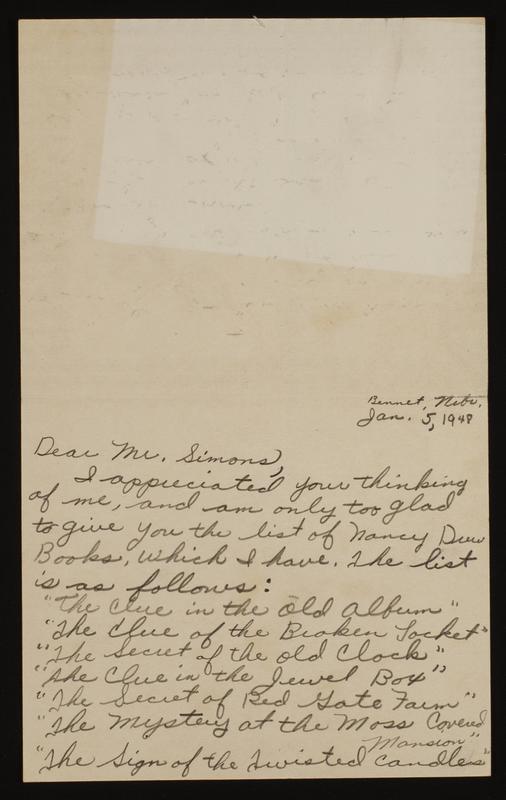 Bennet, Nebr.
Jan. 5, 1948
Dear Mr. Simons,
I appieciated your thinking
of me, and am only too glad
to give you the list of Nancy Drew
Books, which I have. The list
is as follows:
"The Clue in the Old Album"
"The Clue of the Broken Locket"
"The Secret of the old Clock"
"The Clue in the Jewel Box"
"The Secret of Red Gate Farm"
"The Mystery at the Moss Covered
Mansion"
"The Sign of the Twisted Candles"